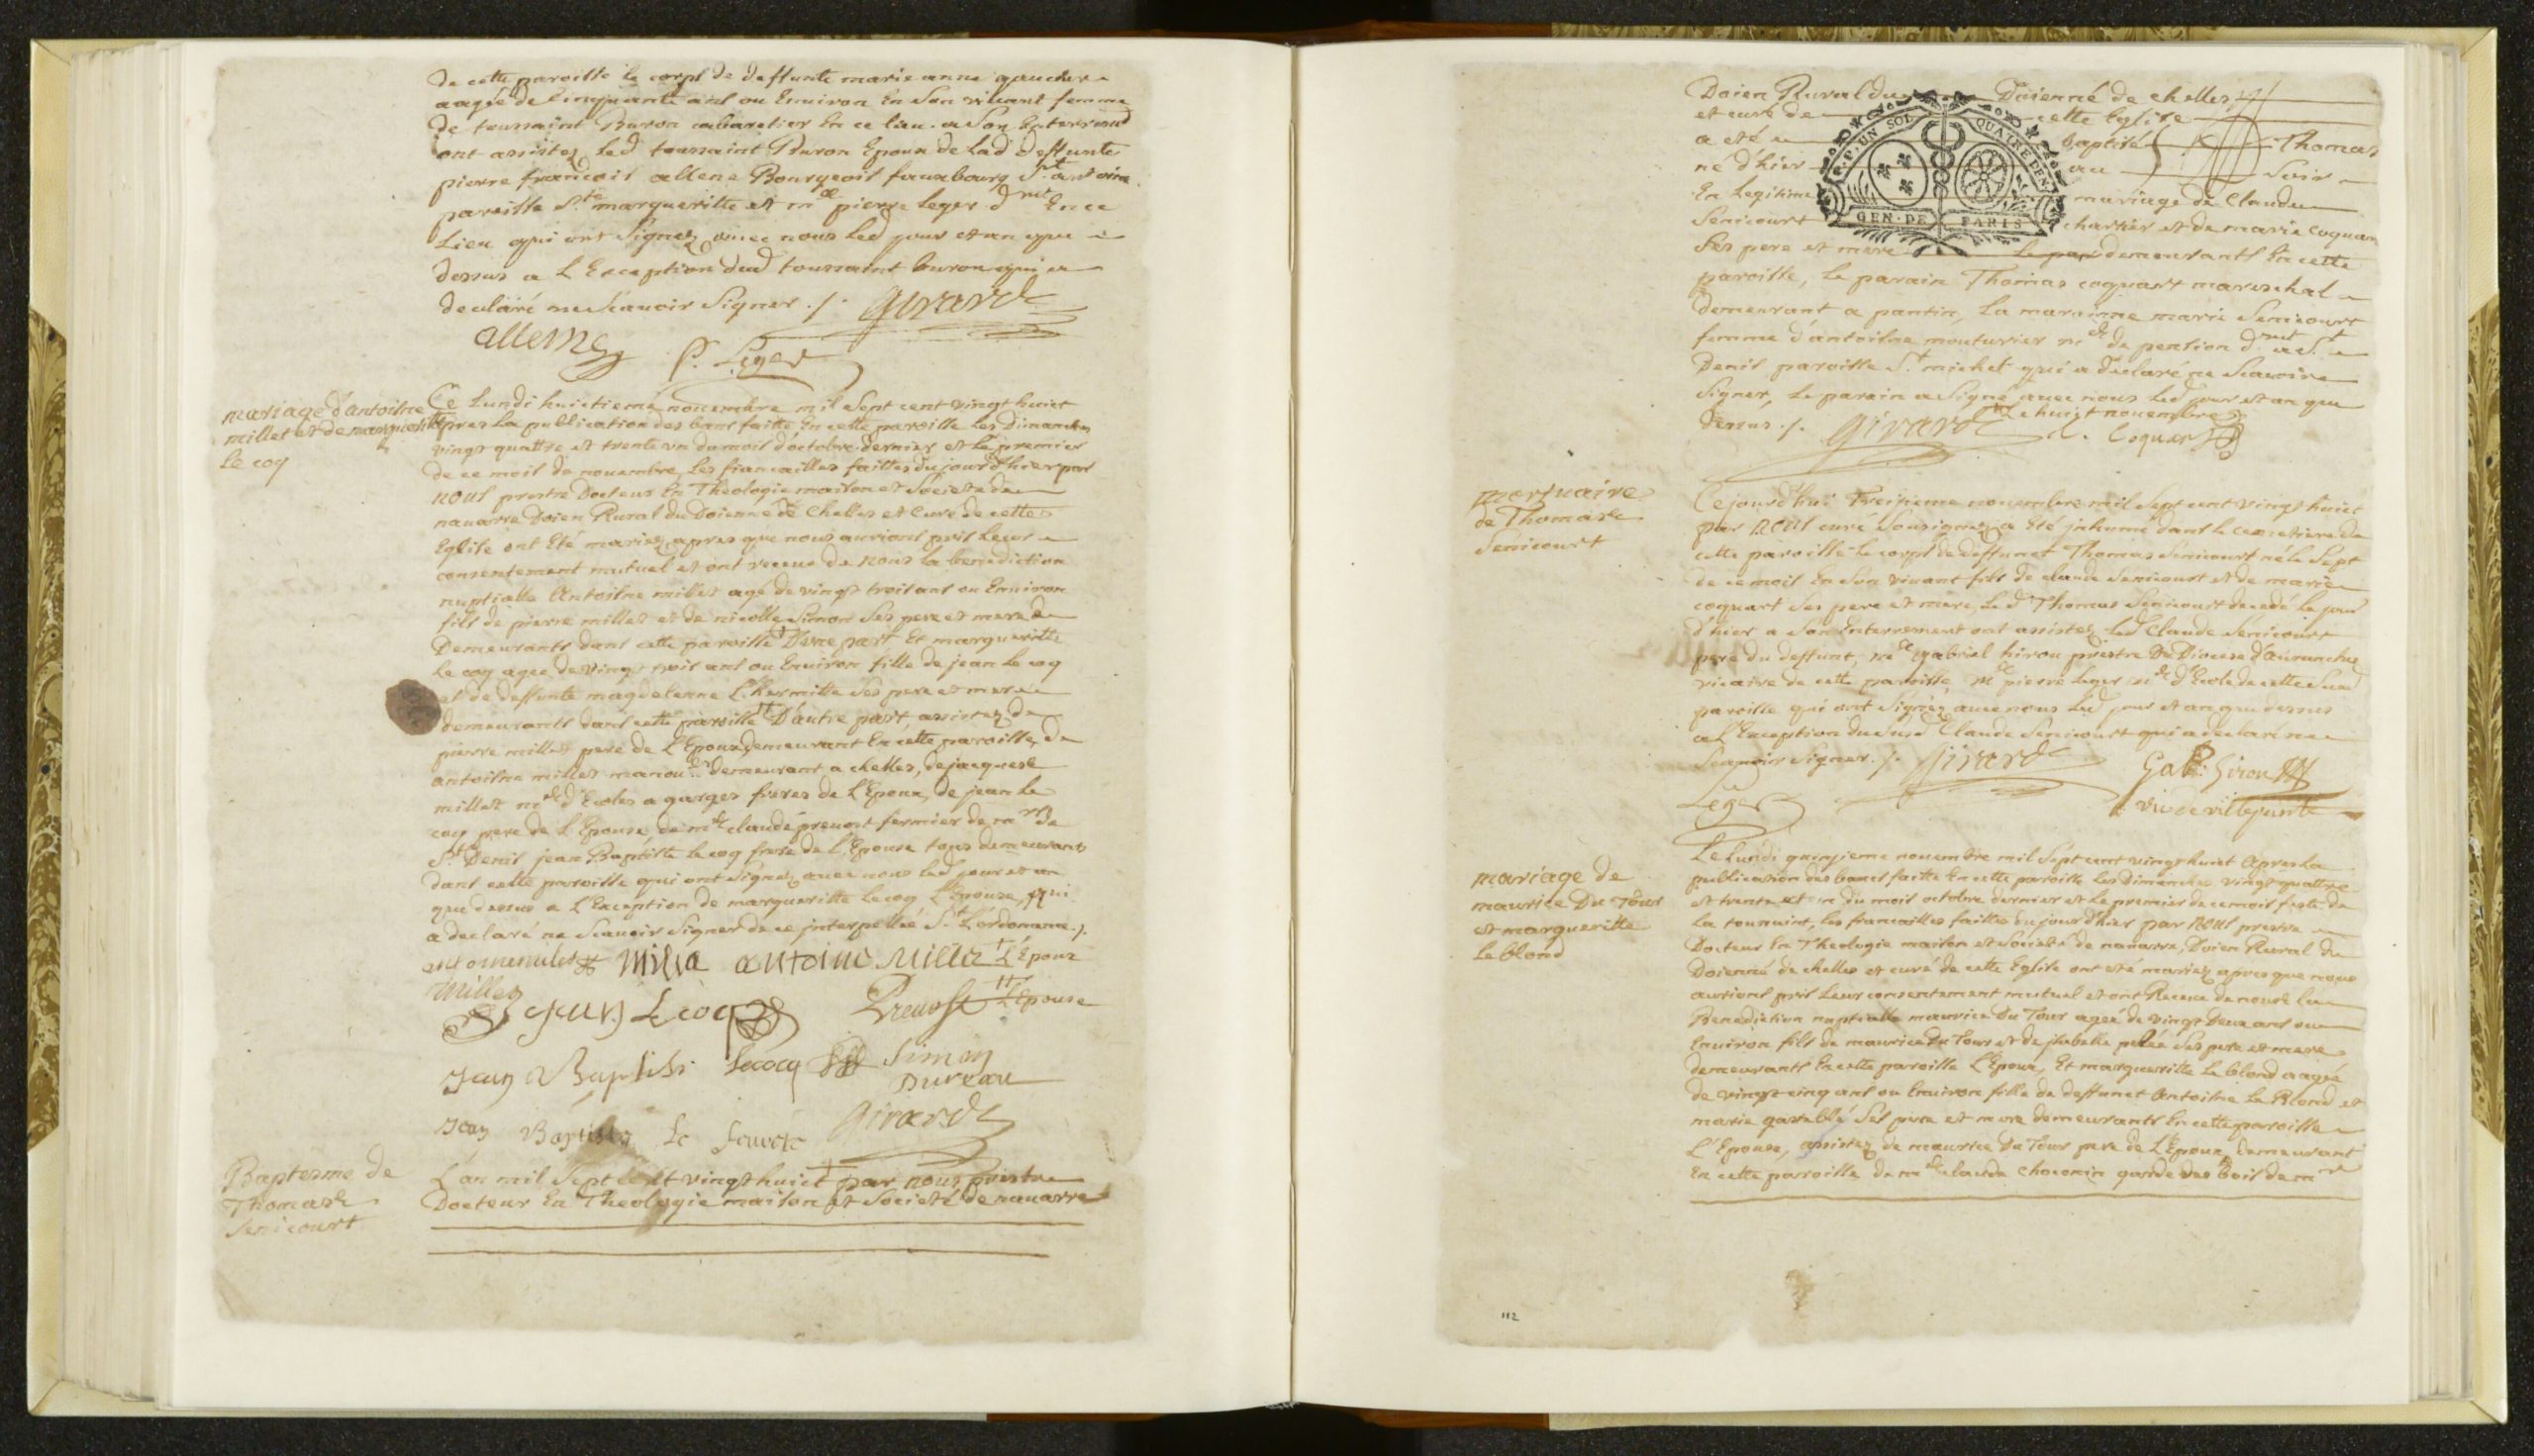 de cette paroisse le corps de deffunte marie anne gauchere
aagée de Cinquante ans ou Environ En Son vivant femme
de toussaint Buron cabaretier En ce lieu. a Son Enterremt
ont assistez led toussaint Buron Epoux de lad deffunte
pierre francois allene Bourgeois fauxbourg St antoine
paroisse Ste margueritte et me pierre leger dmt En ce
Lieu qui ont Signez avec nous led jour et an que
dessus a L'Exception dud toussaint buron qui a
declaré ne Scauoir Signer ./. Girard
allene P. Leger
mariage d'antoisne
millet et de margueritte
Le coq
Ce Lundi huictieme nouembre mil Sept cent vingt huict
apres La publication des bans faitte En cette paroisse Les Dimanches
vingt quattre et trente un du mois d'octobre dernier et Le premier
de ce mois de nouembre, les fiancailles faittes du jour d'hier par
nous prestre Docteur En Theologie maison et Societé de
nauarre Doien Rural du Doienné de Chelles et Curé de cette
Eglise ont Eté mariez apres que nous aurions pris Leur
consentement mutuel et ont receue de nous la benediction
nuptialle Antoisne millet agé de vingt trois ans ou Enuiron
fils de pierre millet et de nicolle Simon Ses pere et mere
Demeurants dans cette paroisse D'une part Et margueritte
le coq agee de vingt trois ans ou Enuiron fille de jean le coq
et de deffunte magdelenne L'hermitte Ses pere et mere
demeurants dans cette paroisse D'autre part, assistez de
pierre millet pere de L'Epoux demeurant En cette paroisse, de
antoisne millet manou.er demeurant a chelles, de jacques
millet me d'Ecoles a garges freres de L'Epoux, de jean le
coq pere de L'Epouse, de me claude preuost fermier de mrs de
St Denis jean Baptiste le coq frere de L'Epouse tous demeurants
dans cette paroisse qui ont Signez auec nous led jour et an
que dessus a L'Exception de margueritte le coq L'Epouse, qui
a declaré ne Scauoir Signer de ce jnterpellée St L'ordonance ./.
antoine millet milla antoine Millet L'Epoux
Millet
Jean Lecoq Preuost L'Epouse
Jean Baptiste Lecocq Simon
Dureau
Jean Baptiste Le Girard
Baptesme de
Thomas
Senicourt
L'an mil Sept cent vingt huict par nous prestre
Docteur En Theologie maison et Societé de nauarre
Doien Rural du Doienné de chelles
et curé de cette Eglise
a eté Baptisé Thomas
né d'hier au Soir
En Legitime mariage de Claude
Senicourt chartier et de marie coquart
Ses pere et mere demeurants En cette
G.P. UN SOL QUATRE DEN.
GEN. DE PARIS
paroisse, le parain Thomas coquart mareschal
demeurant a pantin, La maraine marie Senicourt
femme d'antoisne mouturier md de pention dmt a St
Denis paroisse St michel qui a declaré ne Scauoir
Signer, le parain a Signé auec nous led jour et an que
dessus ./. Girard Le huict nouembre
Coquart
mortuaire
de Thomas
Senicourt
Cejourd'hui Treizieme nouembre mil Sept cent vingt huict
par nous curé Sousigné a Eté jnhumé dans le cemetiere de
cette paroisse le corps de deffunct Thomas Senicourt né le Sept
de ce mois En Son viuant fils de claude Senicourt et de marie
coquart Ses pere et mere, led Thomas Senicourt decedé le jour
d'hier a Son Enterrement ont assistez led Claude Senicourt
pere du deffunt, me gabriel hirou prestre Du Diocese d'auranches
vicaire de cette paroisse, Me pierre Leger me d'Ecole de cette Sud
paroisse qui ont Signez auec nous led jour et an que dessus
a L'Exception du Sud Claude Senicourt qui a declaré ne
Scauoir Signer ./. Girard Gab: Girou
Leger vic de villepinte
mariage de
maurice Du Tour
et margueritte
Le blond
Le Lundi quinzieme nouembre mil Sept cent vingt huict Apres La
publication des bans faitte En cette paroisse Les Dimanches vingt quattre
et trente et un du mois octobre dernier et Le premier de ce mois feste de
La toussaint, les fiancailles faittes du jour d'hier par nous prestre
Docteur En Theologie maison et Societé de nauarre, Doien Rural du
Doienné de chelles et curé de cette Eglise ont eté mariez apres que nous
aurions pris Leur consentement mutuel et ont Receue de nous la
Benediction nuptialle maurice Du Tour agée de vingt Deux ans ou
Enuiron fils de maurice Du Tour et de jsabelle pelée Ses pere et mere
demeurants En cette paroisse L'Epoux, Et margueritte Le blond aagée
de vingt cinq ans ou Enuiron fille de deffunct Antoisne Le Blond et
marie gatellé Ses pere et mere demeurants En cette paroisse
L'Epouse, assistez de maurice Du Tour pere de L'Epoux, demeurant
En cette paroisse de me claude choconin garde des bois de mr
112